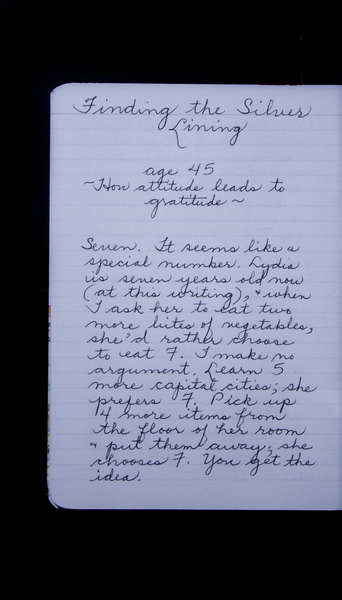 Finding the Silver
Lining
age 45
~How attitude leads to
gratitude~
Seven. It seems like a
special number. Lydia
is seven years old now
(at this writing), & when
I ask her to eat two
more bites of vegetables,
she'd rather choose
to eat 7. I make no
argument. Learn 5
more capital cities; she
prefers 7. Pick up
4 more items from
the floor of her room
& put them away; she
chooses 7. You get the
idea.